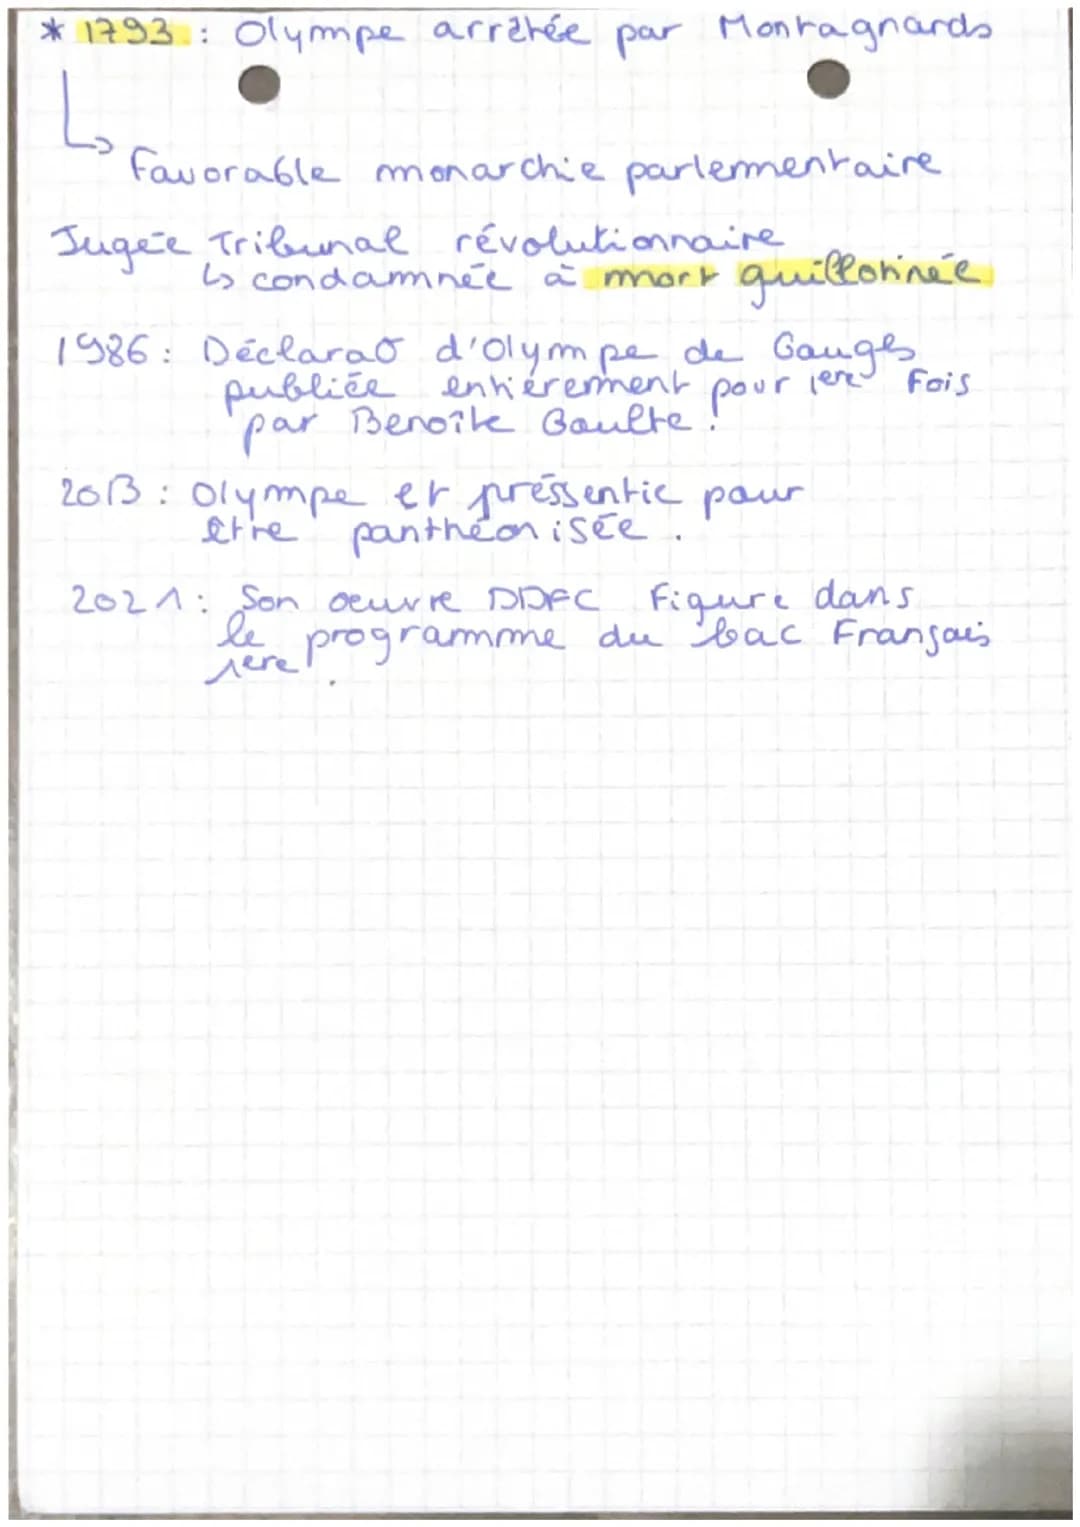 * 1793 : Olympe arrêtée par Montagnards
↳ favorable monarchie parlementaire
Jugée Tribunal révolutionnaire
↳ condamnée à mort guillotinée
1986 : Déclarat° d'Olympe de Gouges
publiée entièrement pour 1ère fois
par Benoîte Goulte.
2013 : Olympe et préssentie pour
être panthéonisée.
2021 : Son oeuvre DDFC figure dans
le programme du bac Français
1ere.